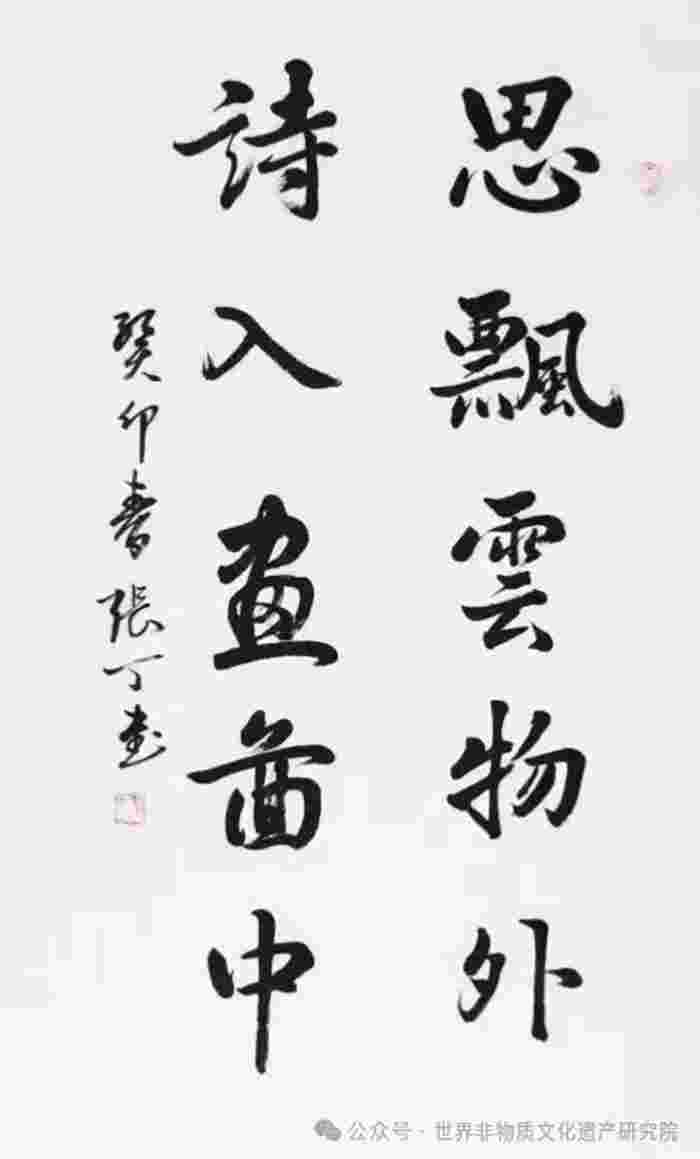 思飄雲物外
詩入畫啚中
癸卯春張丁書
公众号 · 世界非物质文化遗产研究院